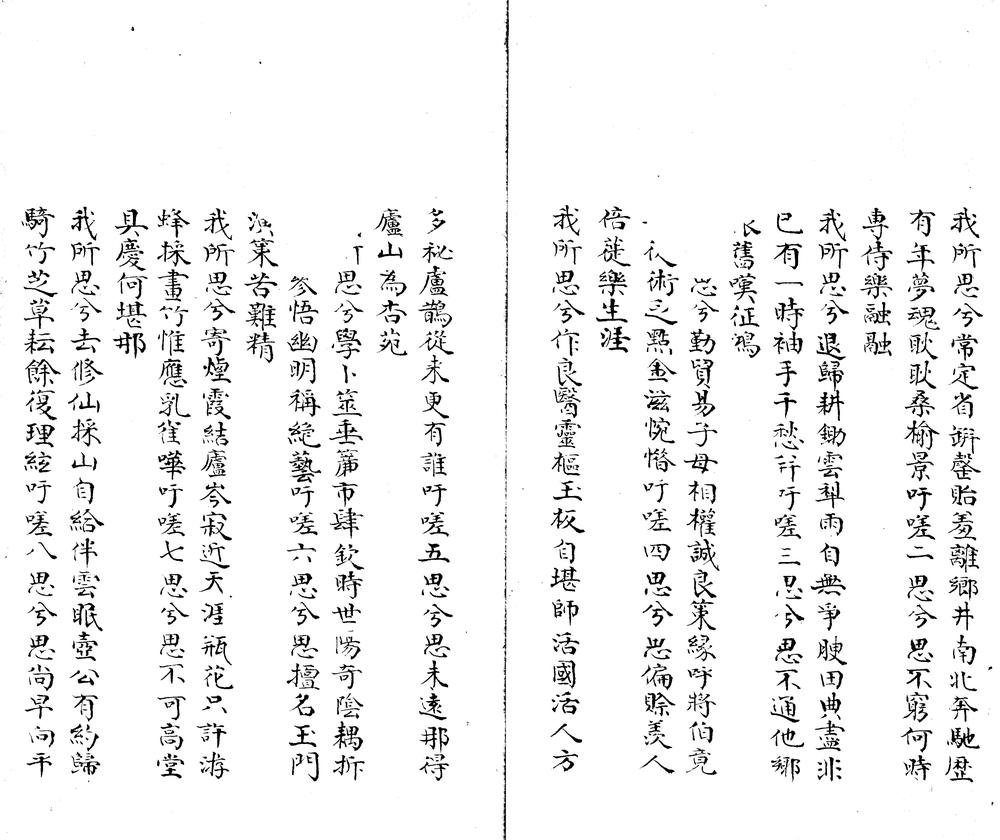 我所思兮常定省缾罄貽羞離鄉井南北奔馳歷
有年夢魂耿耿桑榆景吁嗟二思兮思不窮何時
専侍樂融融
我所思兮退歸耕鋤雲犁雨自無爭腴田典盡非
已有一時袖手千愁并吁嗟三思兮思不通他鄉
舊嘆征鴻
思兮勤貿易子母相權誠良策緣呼將伯竟
術之點金滋惋惜吁嗟四思兮思偏賒羨人
倍蓰樂生涯
我所思兮作良醫靈樞玉板自堪師活國活人方
多秘盧鵲從来更有誰吁嗟五思兮思未遠那得
廬山為杏苑
思兮學卜筮垂簾市肆欽時世陽奇陰耦折
參悟幽明稱絶藝吁嗟六思兮思擅名玉門
演策苦難精
我所思兮寄煙霞結廬岑寂近天涯瓶花只許游
蜂採畫竹惟應乳雀嘩吁嗟七思兮思不可高堂
具慶何堪那
我所思兮去修仙採山自給伴雲眠壺公有約歸
騎竹芝草耘餘復理絃吁嗟八思兮思尚早向平